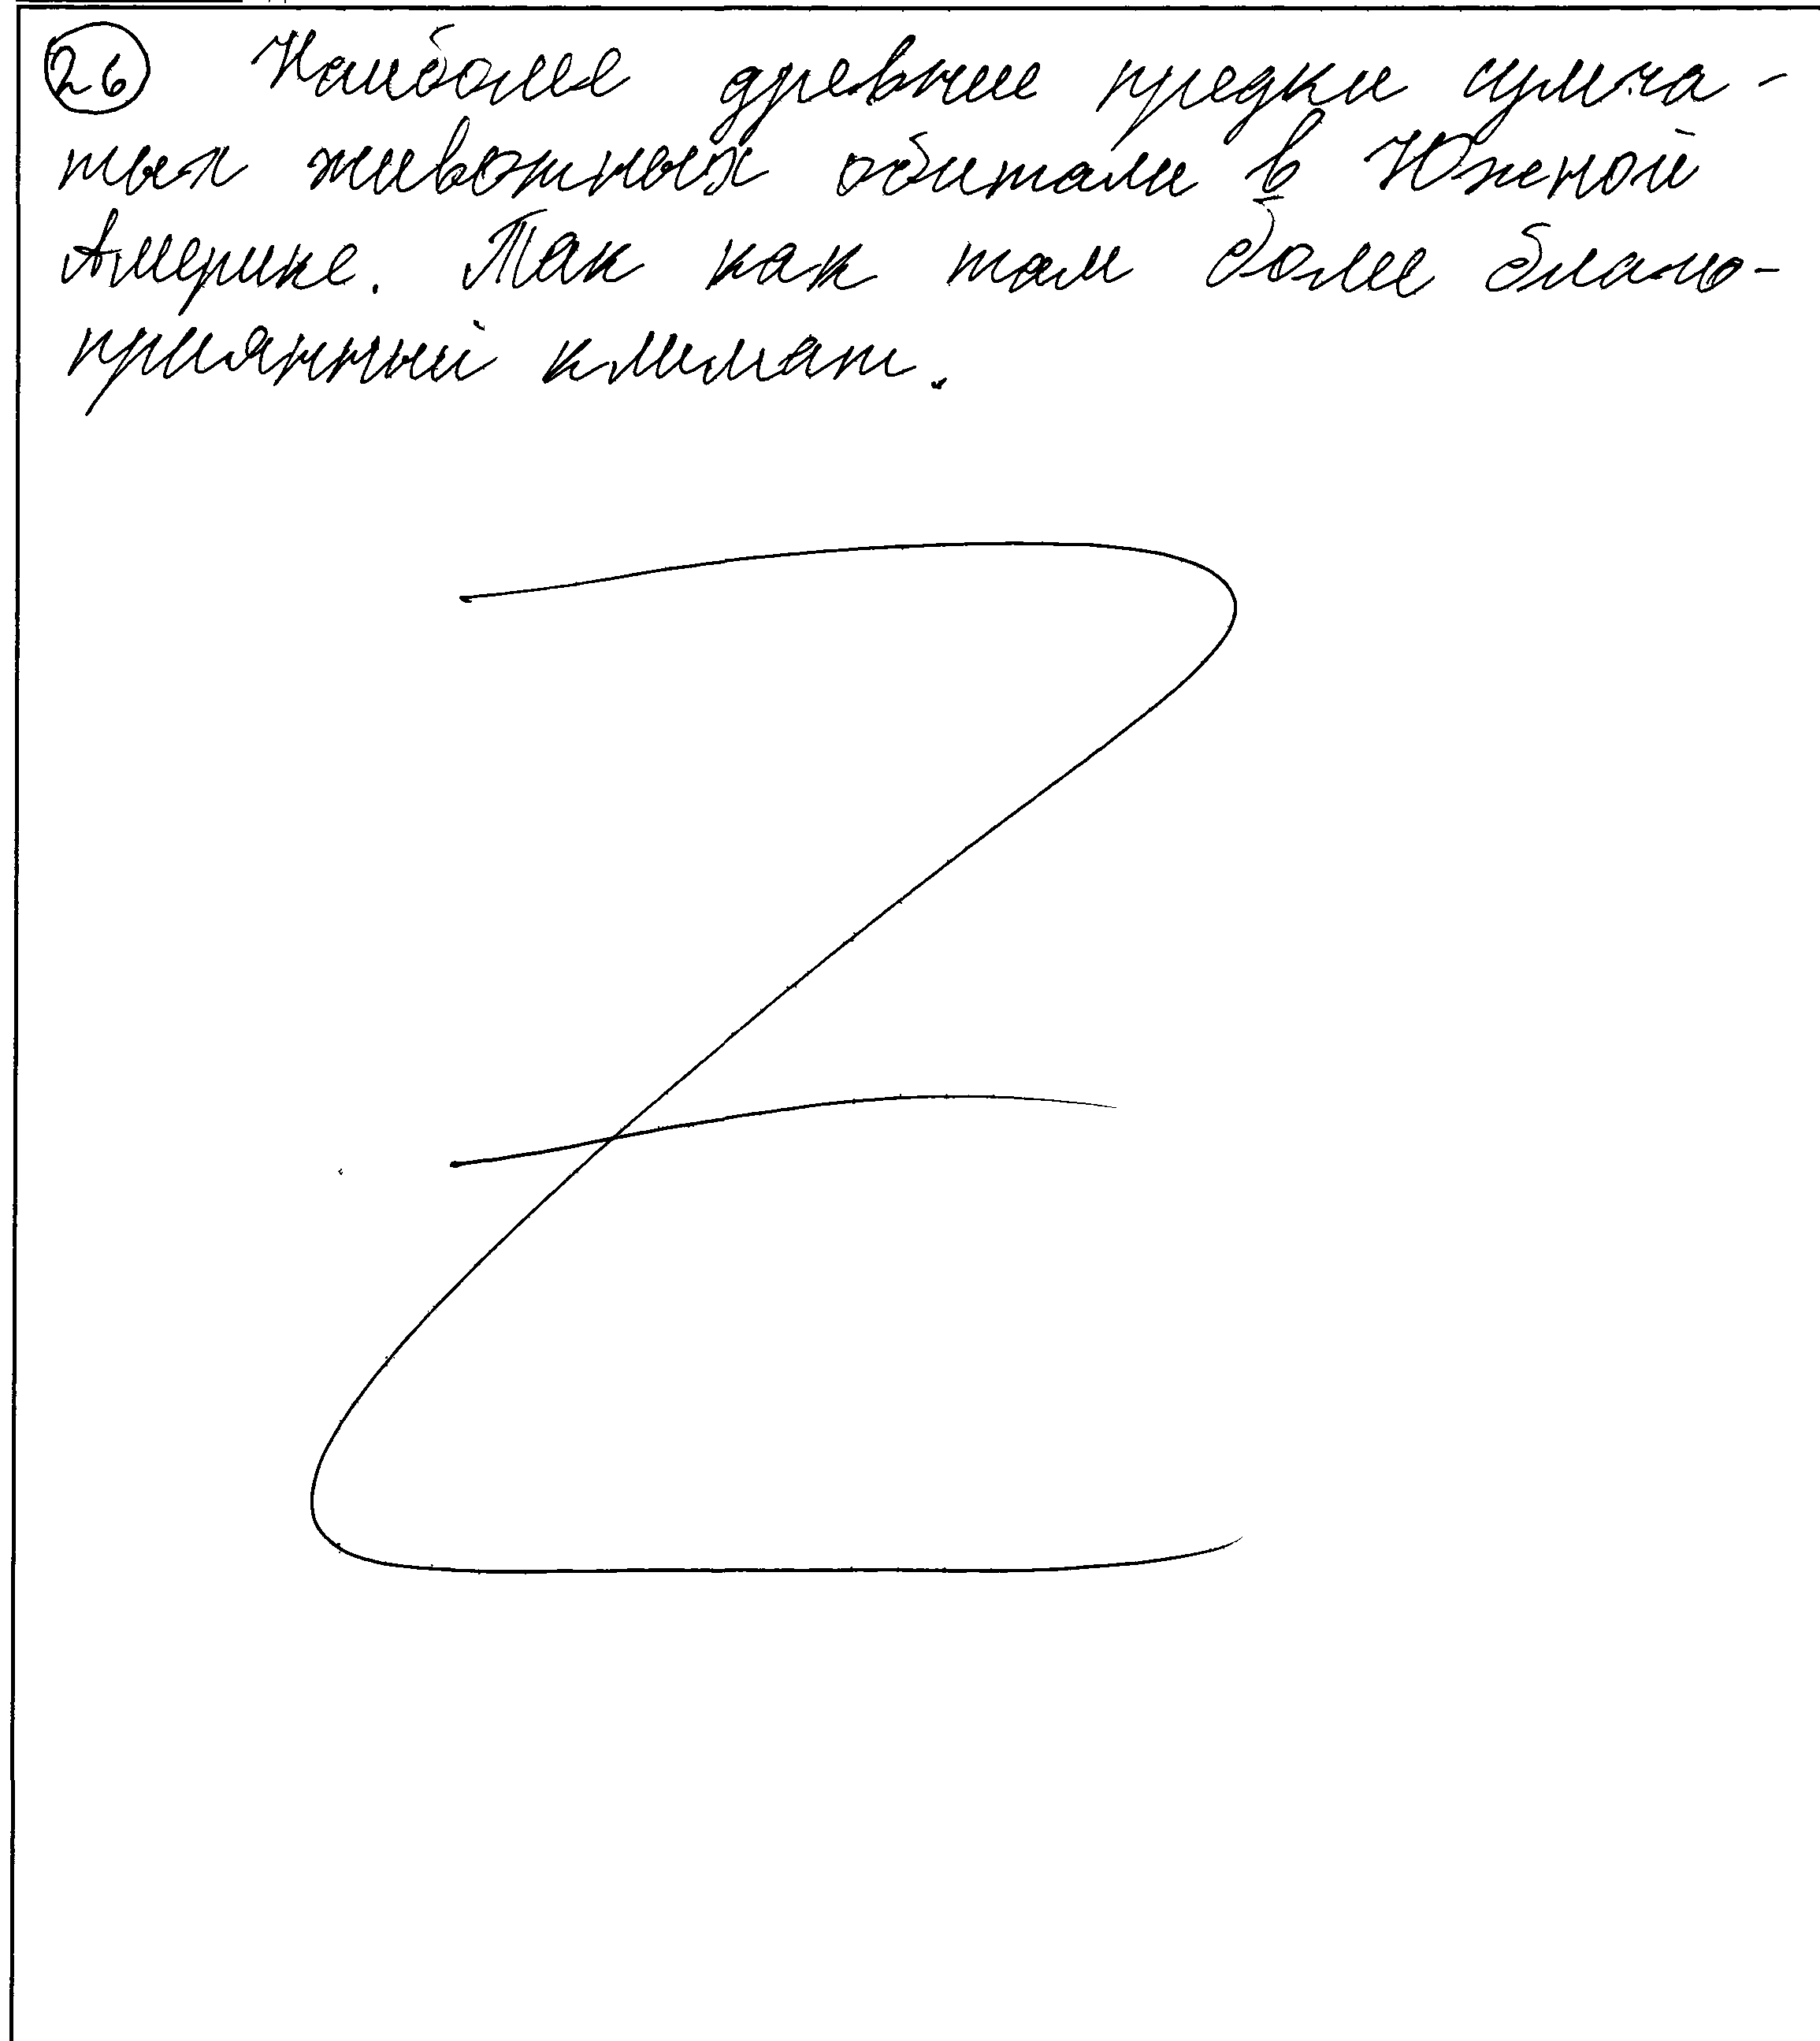 26 Наиболее древние предки сумча-
тых животных обитали в Южной
Америке. Так как там более благо-
приянный климат.